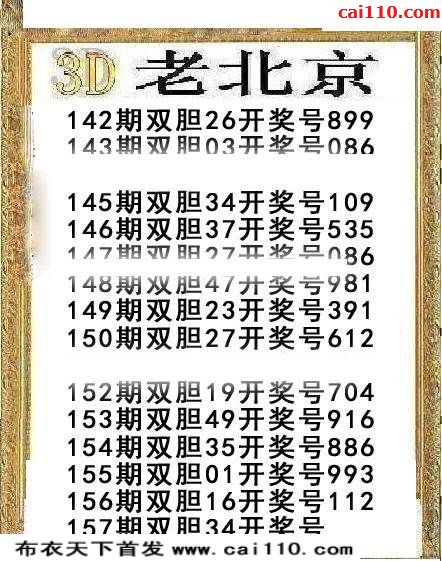 cai110.com
3D 老北京
142期双胆26开奖号899
143期双胆03开奖号086
145期双胆34开奖号109
146期双胆37开奖号535
147期双胆27开奖号086
148期双胆47开奖号981
149期双胆23开奖号391
150期双胆27开奖号612
152期双胆19开奖号704
153期双胆49开奖号916
154期双胆35开奖号886
155期双胆01开奖号993
156期双胆16开奖号112
157期双胆34开奖号
布衣天下首发 www.cai110.com